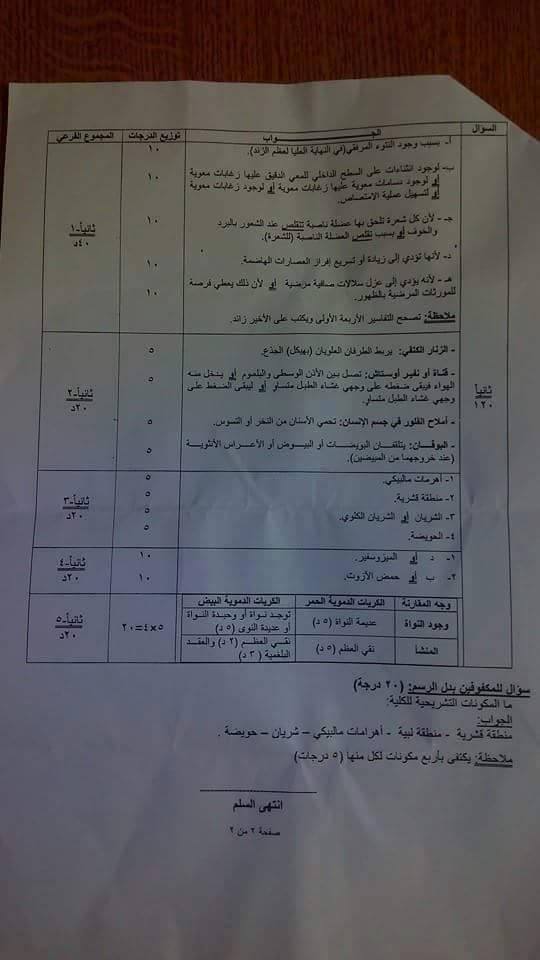 السؤال الجـــواب توزيع الدرجات المجموع الفرعي
ثانياً
١٢٠
أ- بسبب وجود النتوء المرفقي(في النهاية العليا لعظم الزند). ١٠
ب- لوجود انثناءات على السطح الداخلي للمعي الدقيق عليها زغابات معوية
أو لوجود دسامات معوية عليها زغابات معوية أو لوجود زغابات معوية ١٠
أو لتسهيل عملية الامتصاص.
جـ- لأن كل شعرة تلحق بها عضلة ناصبة تتقلص عند الشعور بالبرد ١٠
والخوف أو بسبب تقلص العضلة الناصبة (للشعرة).
د- لأنها تؤدي إلى زيادة أو تسريع إفراز العصارات الهاضمة. ١٠
هـ- لأنه يؤدي إلى عزل سلالات صافية مرضية أو لأن ذلك يعطي فرصة ١٠
للمورثات المرضية بالظهور.
ملاحظة: تصحح التفاسير الأربعة الأولى ويكتب على الأخير زائد.
ثانياً-١
٤٠د
- الزنار الكتفي: يربط الطرفان العلويان (بهيكل) الجذع. ٥
- قناة أو نفير أوستاش: تصل بين الأذن الوسطى والبلعوم أو يدخل منه ٥
الهواء فيبقى ضغطه على وجهي غشاء الطبل متساو أو ليبقى الضغط على
وجهي غشاء الطبل متساو.
- أملاح الفلور في جسم الإنسان: تحمي الأسنان من النخر أو التسوس. ٥
- البوقان: يتلقفان البويضات أو البيوض أو الأعراس الأنثوية ٥
(عند خروجهما من المبيضين).
ثانياً-٢
٢٠د
١- أهرامات مالبيكي. ٥
٢- منطقة قشرية. ٥
٣- الشريان أو الشريان الكلوي. ٥
٤- الحويضة. ٥
ثانياً-٣
٢٠د
١- د أو الميزوسفير. ١٠
٢- ب أو حمض الآزوت. ١٠
ثانياً-٤
٢٠د
وجه المقارنة الكريات الدموية الحمر الكريات الدموية البيض
وجود النواة عديمة النواة (٥ د) توجد نواة أو وحيدة النواة
أو عديدة النوى (٥ د)
المنشأ نقي العظم (٥ د) نقي العظم (٢ د) والعقد
البلغمية (٣ د)
٥×٤=٢٠
ثانياً-٥
٢٠د
سؤال للمكفوفين بدل الرسم: (٢٠ درجة)
ما المكونات التشريحية للكلية:
الجواب:
منطقة قشرية - منطقة لبية - أهرامات مالبيكي – شريان – حويضة .
ملاحظة: يكتفى بأربع مكونات لكل منها (٥ درجات)
انتهى السلم
صفحة ٢ من ٢